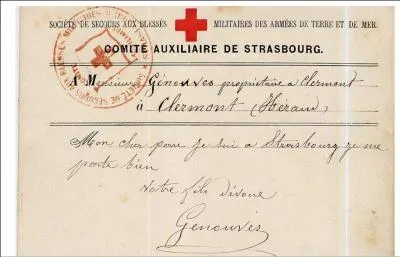 SOCIÉTÉ DE SECOURS AUX BLESSÉS MILITAIRES DES ARMÉES DE TERRE ET DE MER.
COMITÉ AUXILIAIRE DE STRASBOURG.
SOCIÉTÉ DE SECOURS AUX BLESSÉS MILITAIRES
A Monsieur Génouvès propriétaire a Clermont
à Clermont (Héraud)
Mon cher pere je sui a Strasbourg je me
porte bien
Votre fils dévoué
Genouvès